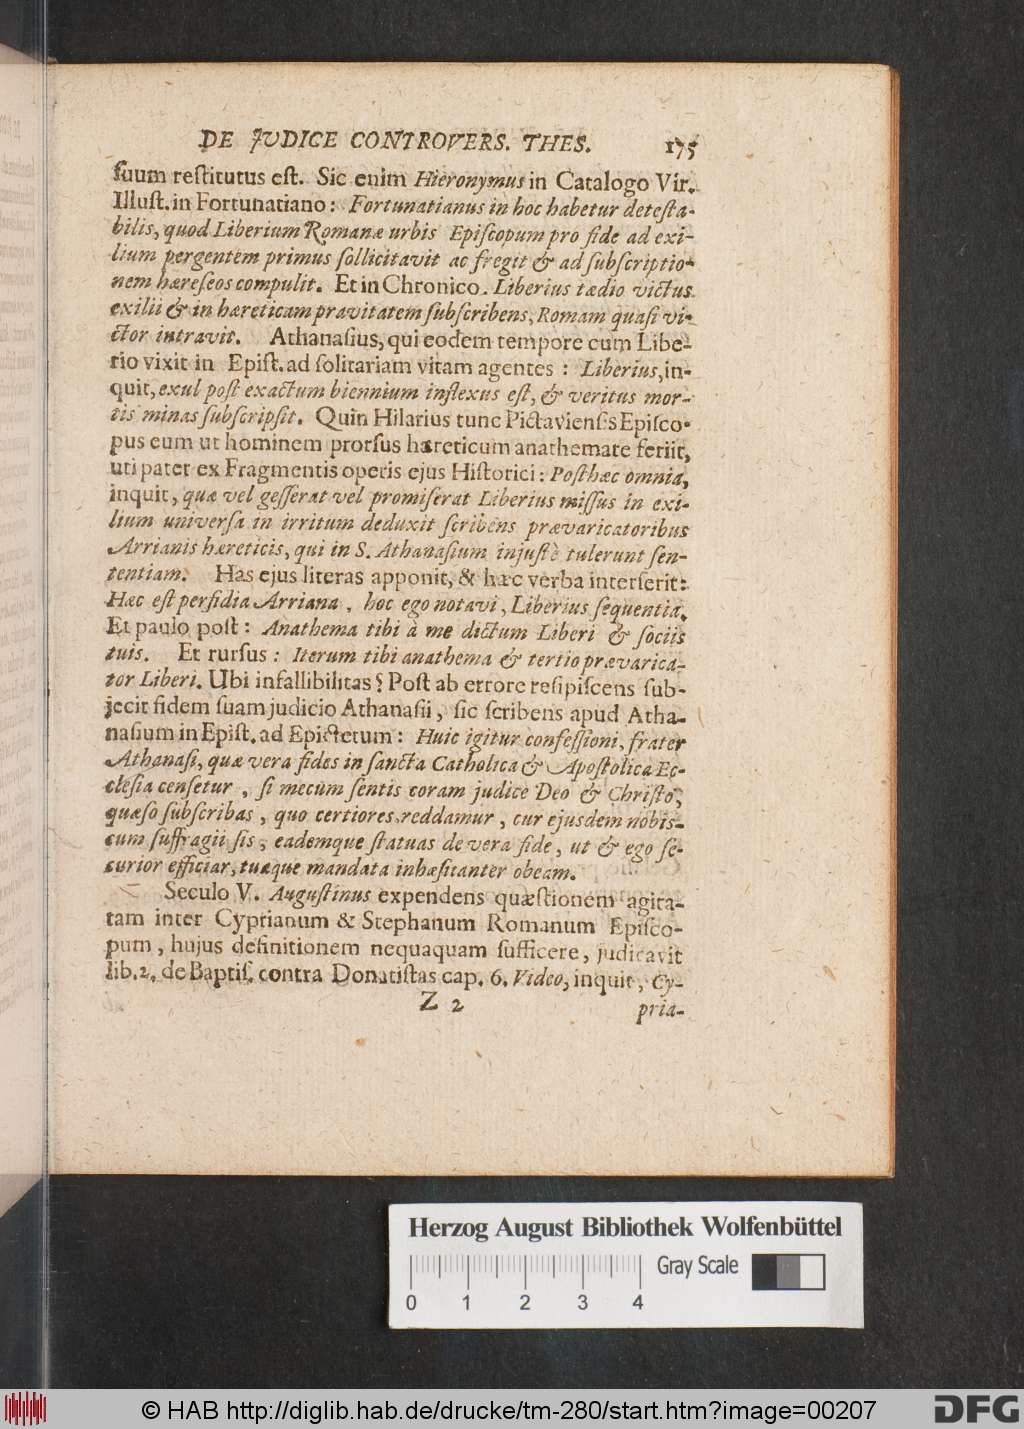 DE JVDICE CONTROVERS. THES. 175
ſuum reſtitutus eſt. Sic enim Hieronymus in Catalogo Vir.
Illuſt. in Fortunatiano: Fortunatianus in hoc habetur deteſta-
bilis, quod Liberium Romanæ urbis Epiſcopum pro fide ad exi-
lium pergentem primus ſollicitavit ac fregit & ad ſubſcriptio-
nem hæreſeos compulit. Et in Chronico. Liberius tædio victus
exilii & in hæreticam pravitatem ſubſcribens, Romam quaſi vi-
ctor intravit. Athanaſius, qui eodem tempore cum Libe-
rio vixit in Epiſt. ad ſolitariam vitam agentes: Liberius, in-
quit, exul poſt exactum biennium inflexus eſt, & veritus mor-
tis minas ſubſcripſit. Quin Hilarius tunc Pictavienſis Epiſco-
pus eum ut hominem prorſus hæreticum anathemate feriit,
uti patet ex Fragmentis operis ejus Hiſtorici: Poſthæc omnia,
inquit, quæ vel geſſerat vel promiſerat Liberius miſſus in exi-
lium univerſa in irritum deduxit ſcribens prævaricatoribus
Arrianis hæreticis, qui in S. Athanaſium injuſtè tulerunt ſen-
tentiam. Has ejus literas apponit, & hæc verba interſerit:
Hæc eſt perfidia Arriana, hoc ego notavi, Liberius ſequentia,
Et paulo poſt: Anathema tibi à me dictum Liberi & ſociis
tuis. Et rurſus: Iterum tibi anathema & tertio prævarica-
tor Liberi. Ubi infallibilitas? Poſt ab errore reſipiſcens ſub-
jecit fidem ſuam judicio Athanaſii, ſic ſcribens apud Atha-
naſium in Epiſt. ad Epictetum: Huic igitur confeſſioni, frater
Athanaſi, quæ vera fides in ſancta Catholica & Apoſtolica Ec-
cleſia cenſetur, ſi mecum ſentis coram judice Deo & Chriſto,
quæſo ſubſcribas, quo certiores reddamur, cur ejusdem nobis-
cum ſuffragii ſis, eademque ſtatuas de vera fide, ut & ego ſe-
curior efficiar, tuaque mandata inhæſitanter obeam.
Seculo V. Auguſtinus expendens quæſtionem agita-
tam inter Cyprianum & Stephanum Romanum Epiſco-
pum, hujus definitionem nequaquam ſufficere, judicavit
lib. 2. de Baptiſ. contra Donatiſtas cap. 6. Video, inquit, Cy-
Z 2 pria-
Herzog August Bibliothek Wolfenbüttel
Gray Scale
0 1 2 3 4
© HAB http://diglib.hab.de/drucke/tm-280/start.htm?image=00207
DFG